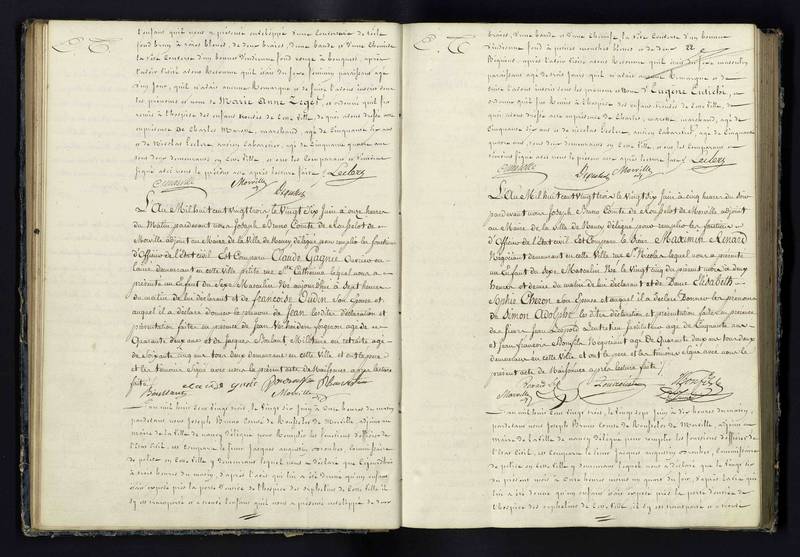 l'enfant qu'il nous a présenté enveloppé d'une Couverture de toile
fond brun à raies bleues, de deux braies, d'une bande et d'une Chemise
la tête Couverte d'un bonnet d'indienne fond rouge à bouquets, après
l'avoir visité avons Reconnu qu'il était du sexe féminin paraissant âgé
d'un jour, qu'il n'avait aucune Remarque et de suite l'avons inscrit sous
les prénoms et nom de Marie Anne Léger, et ordonné qu'il fut
remis à l'hospice des enfants trouvés de Cette Ville, de quoi avons dressé acte
en présence De Charles Marotte, marchand, âgé de Cinquante six ans
et de Nicolas Leclerc, ancien Cabaretier, âgé de Cinquante quatre ans
tous deux demeurans en Cette Ville et ont les Comparans et témoins
signé avec nous le présent acte après lecture faite /. Leclerc
Morville
L'An Mil huit cent Vingt trois le Vingt Six Juin à onze heures
du Matin pardevant nous Joseph Bruno Comte de Rousselot de
Morville adjoint au Maire de la Ville de Nancy délégué pour remplir les fonctions
d'Officier de l'Etat civil Est Comparu Claude Gagnié Ouvrier en
laine demeurant en cette Ville petite rue Ste Catherine lequel nous a
présenté un Enfant du Sexe Masculin Né aujourd'hui à Sept heures
du matin de lui déclarant et de Françoise Oudin Son Epouse et
auquel il a déclaré donner le prénom de Jean lesdites déclaration et
présentation faites en présence de Jean forgeron âgé de
Quarante deux ans et de Jacques Militaire en retraite âgé
de Soixante cinq ans tous deux demeurans en cette Ville et ont le père
et les témoins Signé avec nous le présent acte de Naissance après lecture
faite /.
Morville
L'an mil huit Cent vingt trois, le vingt six Juin à onze heures du matin,
pardevant nous Joseph Bruno Comte de Rousselot de Morville, adjoint au
maire de la ville de nancy délégué pour remplir les fonctions d'officier de
l'état Civil, est Comparu le Sieur Jacques augustin , Commissaire
de police en Cette Ville y demeurant lequel nous a déclaré que Cejourd'hui
à trois heures du matin, d'après l'avis qui lui a été donné qu'un enfant
était exposé près la porte d'entrée de l'hospice des orphelins de Cette Ville il
s'y est transporté et a trouvé l'enfant qu'il nous a présenté enveloppé de deux
22
braies, d'une bande et d'une Chemise, la tête Couverte d'un bonnet
d'indienne fond à petites mouches bleues et de deux
béguins, après l'avoir visité avons Reconnu qu'il était du sexe masculin
paraissant âgé de trois Jours qu'il n'avait aucune Remarque et de
suite l'avons inscrit sous les prénom et nom d'Eugène Eutichi, et
ordonné qu'il fut Remis à l'hospice des enfants trouvés de Cette Ville, de
quoi avons dressé acte en présence de Charles, marotte, marchand, âgé de
Cinquante six ans et de nicolas leclerc, ancien Cabaretier, âgé de Cinquante
quatre ans, tous deux demeurans en Cette Ville, et ont les Comparans et
témoins signé avec nous le présent acte après lecture faite /. Leclerc
Morville
L'An Mil huit cent Vingt trois le Vingt Six Juin à cinq heures du Soir
pardevant nous Joseph Bruno Comte de Rousselot de Morville adjoint
au Maire de la Ville de Nancy délégué pour remplir les fonctions
d'Officier de l'Etat civil Est Comparu le Sieur Maximin Renard
Négociant demeurant en cette Ville rue St Nicolas lequel nous a présenté
un Enfant du Sexe Masculin Né le Vingt cinq du présent mois à deux
heures et demie du matin de lui déclarant et de Dame Elisabeth
Sophie Cheron Son Epouse et auquel il a déclaré Donner les prénoms
de Simon Adolphe lesdites déclaration et présentation faites en présence
de Pierre Jean facteur âgé de Cinquante ans
et Jean François Bonfils Négociant âgé De Quarante deux ans tous deux
demeurans en cette Ville et ont le père et les témoins Signé avec nous le
présent acte de Naissance après lecture faite /.
Morville
L'an mil huit Cent vingt trois, le vingt sept Juin à dix heures du matin,
pardevant nous Joseph Bruno Comte de Rousselot de Morville, adjoint au
maire de la Ville de Nancy délégué pour remplir les fonctions d'officier de
l'état Civil, est Comparu le Sieur Jacques augustin , Commissaire
de police en Cette Ville y demeurant lequel nous a déclaré que le vingt six
du présent mois à onze heures moins un quart du soir, d'après l'avis qui
lui a été donné qu'un enfant était exposé près la porte d'entrée de
l'hospice des orphelins de Cette Ville, il s'y est transporté et a trouvé